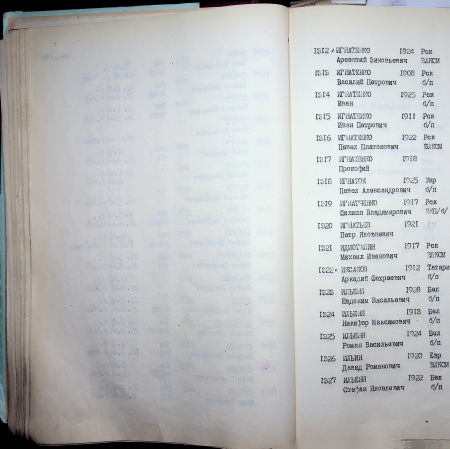 1312 ИГНАТЕНКО 1924 Рск
Арсентий Зиновьевич ВЛКСМ
1313 ИГНАТЕНКО 1908 Рск
Василий Петрович б/п
1314 ИГНАТЕНКО 1925 Рск
Иван б/п
1315 ИГНАТЕНКО 1911 Рск
Иван Петрович б/п
1316 ИГНАТЕНКО 1922 Рск
Павел Платонович ВЛКСМ
1317 ИГНАТЕНКО 1918
Прокофий
1318 ИГНАТОК 1925 Укр
Павел Александрович б/п
1319 ИГНАТЧЕНКО 1917 Рск
Филипп Владимирович ВКП/б/
1320 ИГНАТЬЕВ 1921
Петр Яковлевич
1321 1917 Рск
Михаил Иванович ВЛКСМ
1322 ИКСАКОВ 1912 Татари
Аркадий б/п
1323 ИЛЬЕНЯ 1928 Бел
Евдоким Васильевич б/п
1324 ИЛЬЕНЯ 1913 Бел
Никифор Максимович б/п
1325 ИЛЬЕНЯ 1924 Бел
Роман Васильевич б/п
1326 ИЛЬИН 1920 Кар
Давид Романович ВЛКСМ
1327 ИЛЬЕНЯ 1922 Бел
Стефан Яковлевич б/п